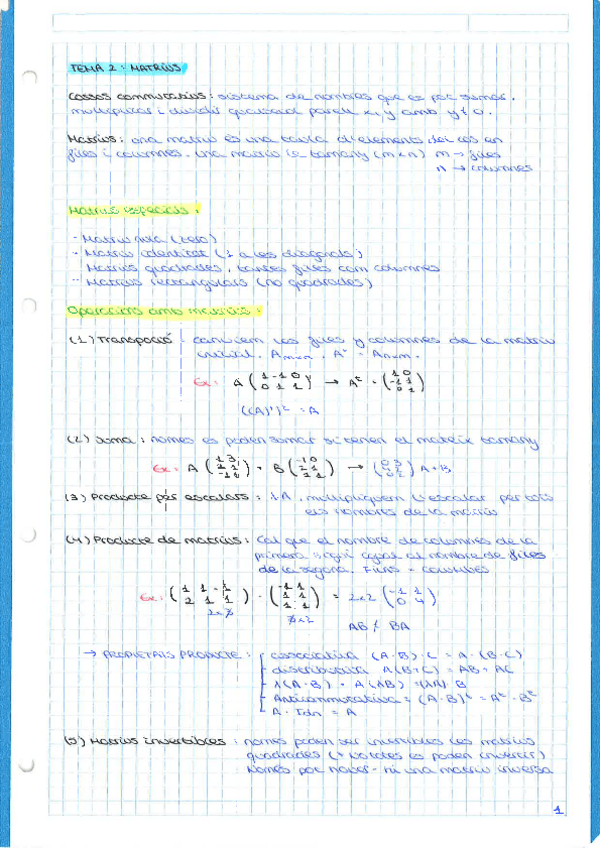 TEMA 2: MATRIUS
Cossos commutatius: sistema de nombres que es pot sumar,
multiplicar i dividir qualsevol parell x, y amb y ≠ 0.
Matrius: una matriu és una taula d'elements del cos en
files i columnes. Una matriu té tamany (m × n) m → files
n → columnes
Matrius especials:
- Matriu nula (zero)
- Matriu identitat (1 a les diagonals)
- Matrius quadrades, tantes files com columnes
- Matrius rectangulars (no quadrades)
Operacions amb matrius:
(1) Transposició: canviem les files y columnes de la matriu
inicial. Am×n, At = An×m.
Ex: A (1 -1 0 / 0 1 1) → At = (1 0 / -1 1 / 0 1)
((A)t)t = A
(2) Suma: només es poden sumar si tenen el mateix tamany
Ex: A + B → A+B
(3) Producte per escalars: λA, multipliquem l'escalar per tots
els nombres de la matriu
(4) Producte de matrius: Cal que el nombre de columnes de la
primera sigui igual al nombre de files
de la segona. Files = columnes
Ex: (1 1 -1 / 2 1 1) · (-1 1 / 1 1 / 1 1) = 2x2 (-1 1 / 0 4)
2x3 3x2
AB ≠ BA
→ PROPIETATS PRODUCTE: associativa (A·B)·C = A·(B·C)
distributiva A(B+C) = AB + AC
λ(A·B) = A(λB) = (λA)·B
Anticommutativa = (A·B)t = At · Bt
A · Idn = A
(5) Matrius invertibles: només poden ser invertibles les matrius
quadrades (* No totes es poden invertir)
Només pot haver-hi una matriu inversa
1